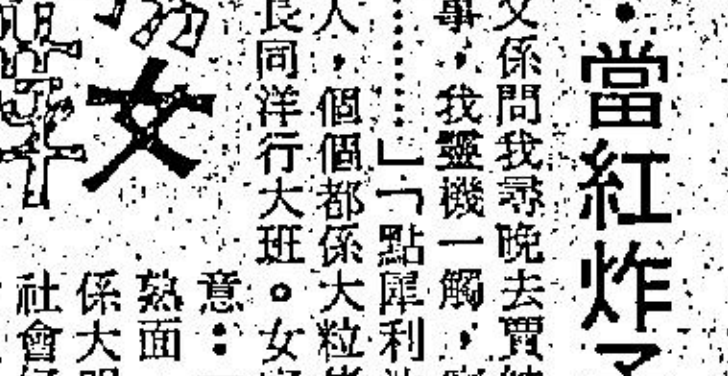 ・當紅炸
係問我尋晚去賈
事，我靈機一觸，
……」「點犀利
人，個個都係大粒
長同洋行大班。女
意：
熟面
係大
社會
女